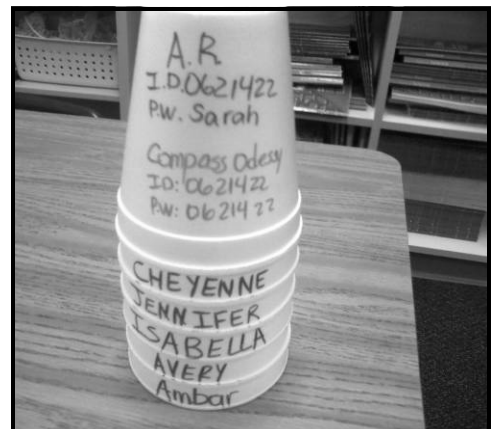 A.R
I.D.0621422
P.W. Sarah
Compass Odessy
ID: 0621422
P.W: 0621422
CHEYENNE
JENNIFER
ISABELLA
AVERY
Ambar